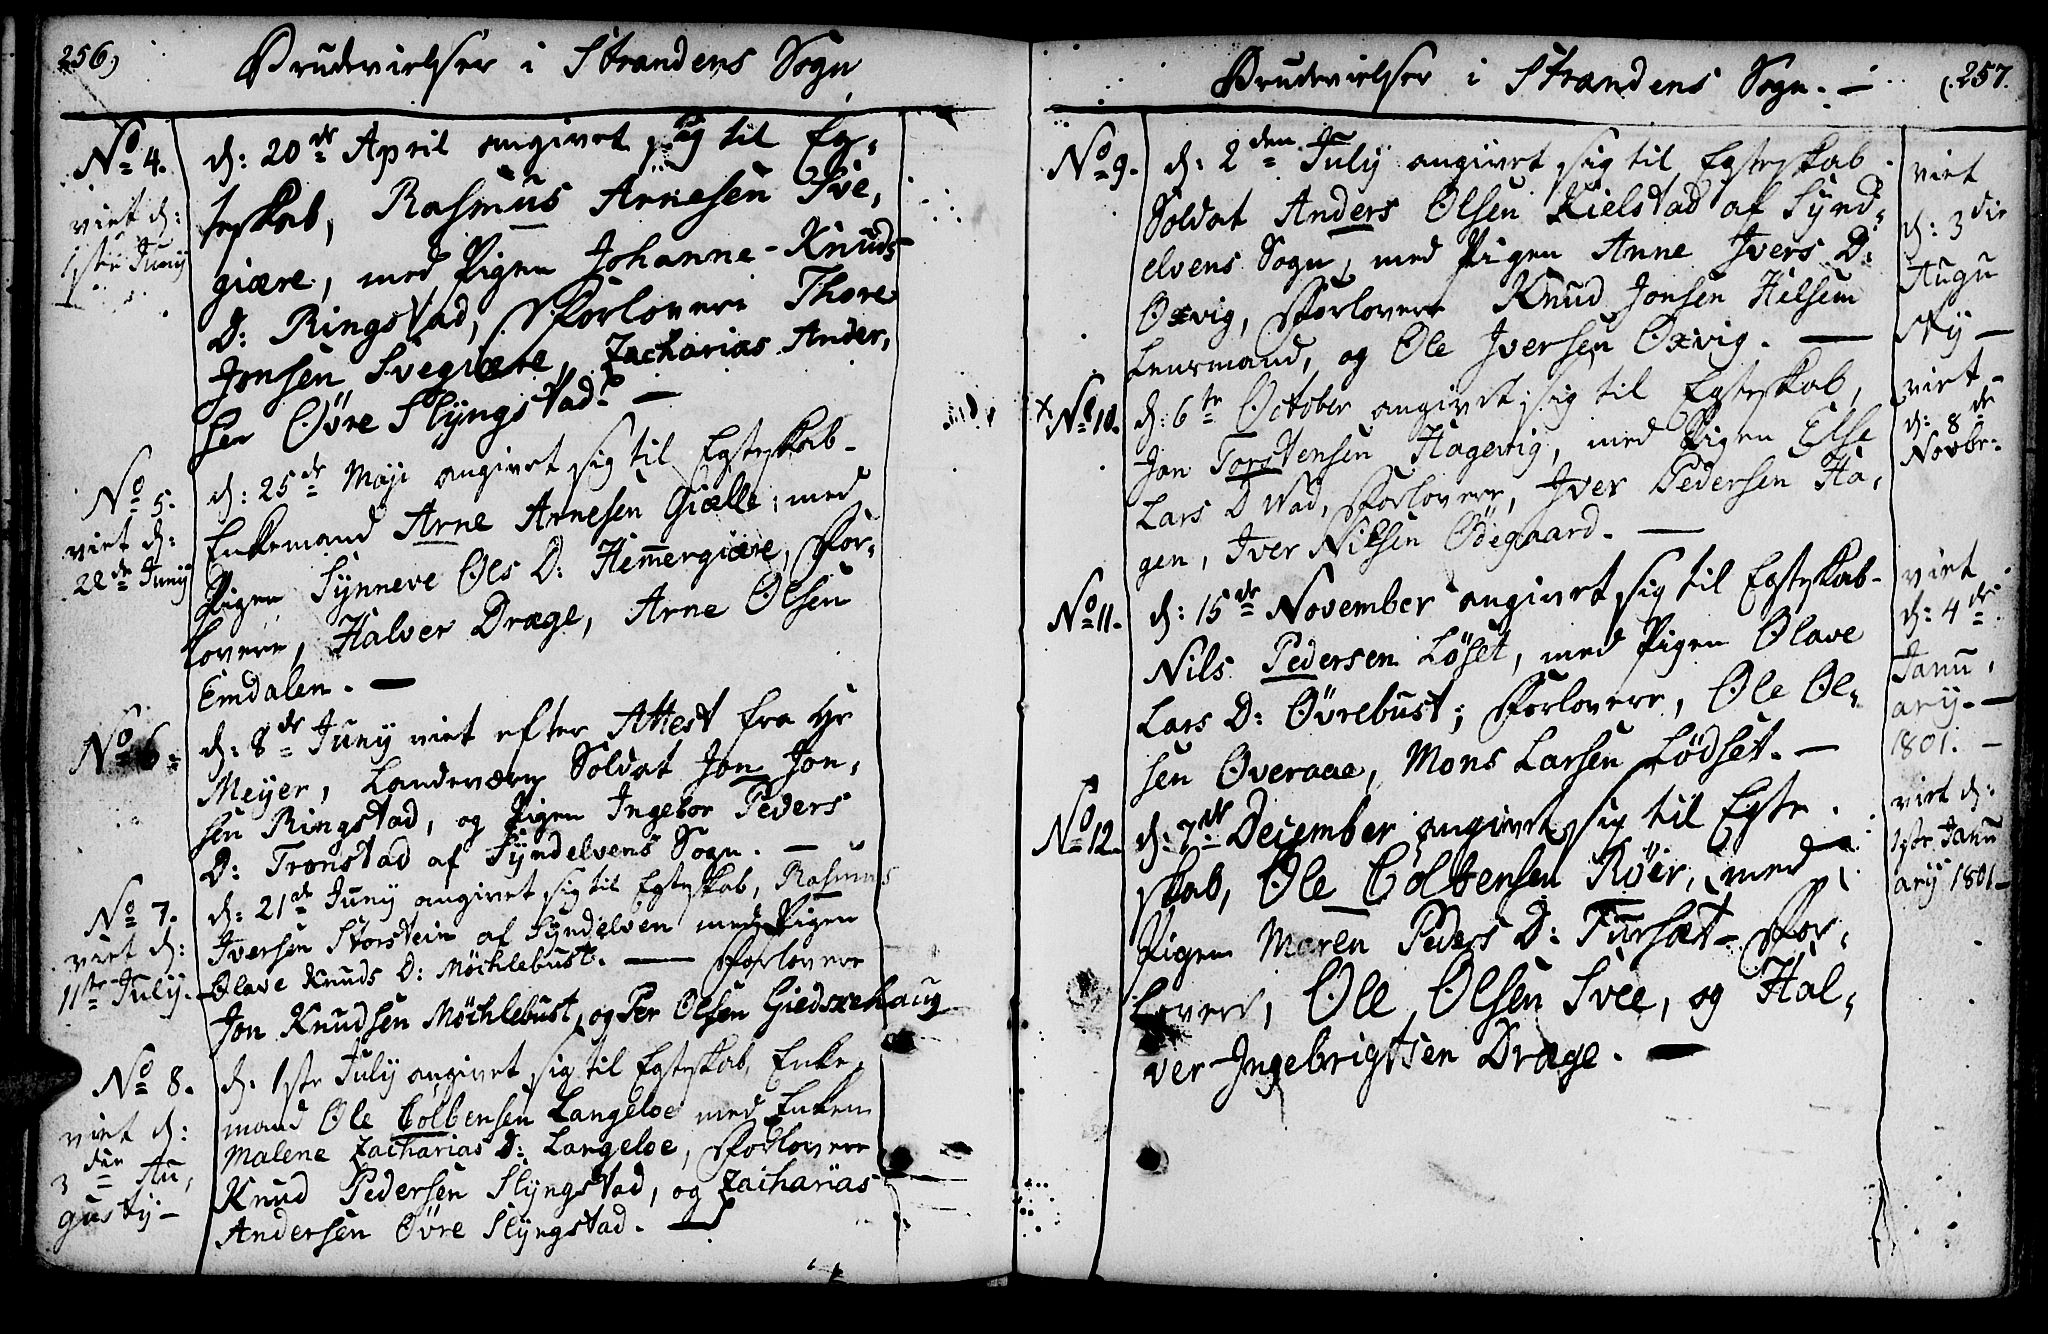 256)
Brudevielser i Strandens Sogn
No 4.
viet d:
1ste Juny
d: 20de April angivet sig til Eg,
teskab, Rasmus Arnesen Sve,
giære, med Pigen Johanne Knuds
D: Ringstad, Forlovere Thore
Jonsen Svegiære, Zacharias Ander,
sen Øvre Slyngstad. —
No 5.
viet d:
22de Juny
d: 25de Maji angivet sig til Egteskab
Enkemand Arne Arnesen Giælle; med
Pigen Synneve Ols D: Hemmergiære, For,
lovere, Halver Dræge, Arne Olsen
Emdalen. —
No 6.
d: 8de Juny viet efter Attest fra Hr
Meyer, Landeværn Soldat Jon Jon,
sen Ringstad, og Pigen Ingebor Peders
D: Tronstad af Syndelvens Sogn. —
No 7.
viet d:
11te July.
d: 21de Juny angivet sig til Egteskab, Rasmus
Iversen Storstein af Syndelven med Pigen
Olave Knuds D: Möchlebust. — Forlovere
Jon Knudsen Möchlebust, og Per Olsen Giedskehaug
No 8.
viet d:
3die Au,
gusty —
d. 1ste July angivet sig til Egteskab, Enke,
mand Ole Colbensen Langeloe med Enken
Malene Zacharias D: Langeloe, Forlovere
Knud Pedersen Slyngstad, og Zacharias
Andersen Øvre Slyngstad. —
Brudevielser i Strandens Sogn. —
(257.
No 9.
d: 2den July angivet sig til Egteskab
Soldat Anders Olsen Kielstad af Synd,
elvens Sogn, med Pigen Anne Ivers D:
Oxvig, Forlovere Knud Jonsen Hilsem
Lensmand, og Ole Iversen Oxvig. —
viet
d: 3die
Augu
sty —
x No 10.
d: 6te October angivet sig til Egteskab,
Jon Torstensen Hagevig, med Pigen Else
Lars D Wad, Forlovere, Iver Pedersen Ha,
gen, Iver Nilsen Ödegaard. —
viet
d: 8de
Novbr:
No 11.
d: 15de November angivet sig til Egteskab
Nils Pedersen Löset, med Pigen Olave
Lars D: Övrebust; Forlovere, Ole Ol,
sen Overaae, Mons Larsen Lødset. —
viet
d: 4de
Janu,
ary. —
1801. —
No 12.
d: 7de December angivet sig til Egte
skab, Ole Colbensen Röir, med
Pigen Maren Peders D: Fursæt — For,
lovere, Ole Olsen Svee, og Hal,
ver Ingebrigtsen Dræge. —
viet d:
1ste Janu
ary 1801 —